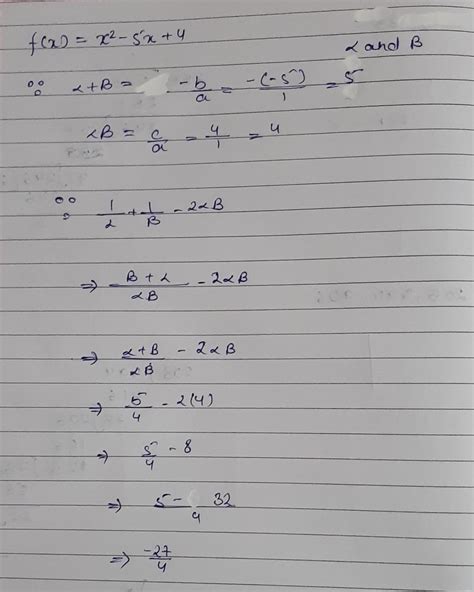 f(x) = x² - 5x + 4
α and β
∵ α+β = -b/a = -(-5)/1 = 5
αβ = c/a = 4/1 = 4
∵ 1/α + 1/β - 2αβ
⇒ β + α/αβ - 2αβ
⇒ α+β/αβ - 2αβ
⇒ 5/4 - 2(4)
⇒ 5/4 - 8
⇒ 5 - 32/4
⇒ -27/4